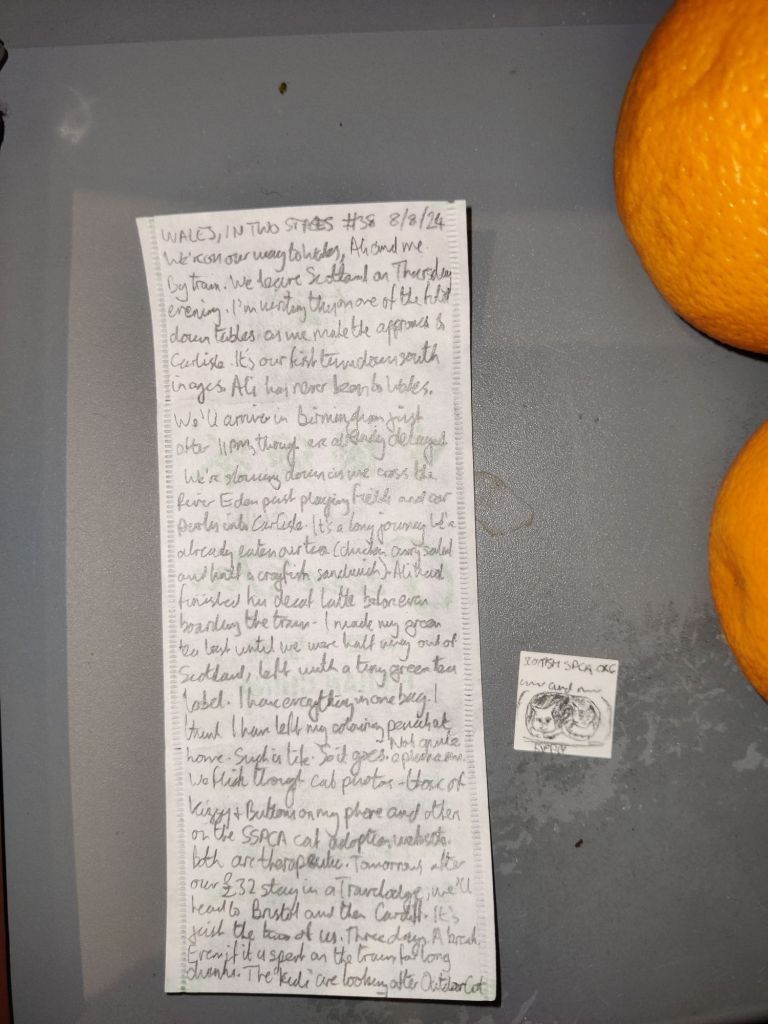 WALES, IN TWO #38 8/8/24
We're on our way to Wales, Ali and me.
By train. We leave Scotland on Thursday
evening. I'm writing this on one of the fold
down tables as we make the approach to
Carlisle. It's our first time down south
in ages. Ali has never been to Wales.
We'll arrive in Birmingham just
after 11PM, though are already delayed.
We're slowing down as we cross the
River Eden past playing fields and car
parks into Carlisle. It's a long journey. We've
already eaten our tea (chicken curry salad
and half a crayfish sandwich). Ali had
finished her decaf latte before even
boarding the train - I made my green
tea last until we were half way out of
Scotland, left with a tiny green tea
label. I have everything in one bag. I
think I have left my colouring pencils at
home. Such is life. So it goes. Not quite
We flick through cat photos - those of
Kizzy + Buttons on my phone and others
on the SSPCA cat adoption website.
Both are therapeutic. Tomorrow after
our £32 stay in a Travelodge, we'll
head to Bristol and then Cardiff. It's
just the two of us. Three days. A break.
Even if it is spent on the train for long
chunks. The 'kids' are looking after OutdoorCat
SCOTTISH SPCA.ORG
and